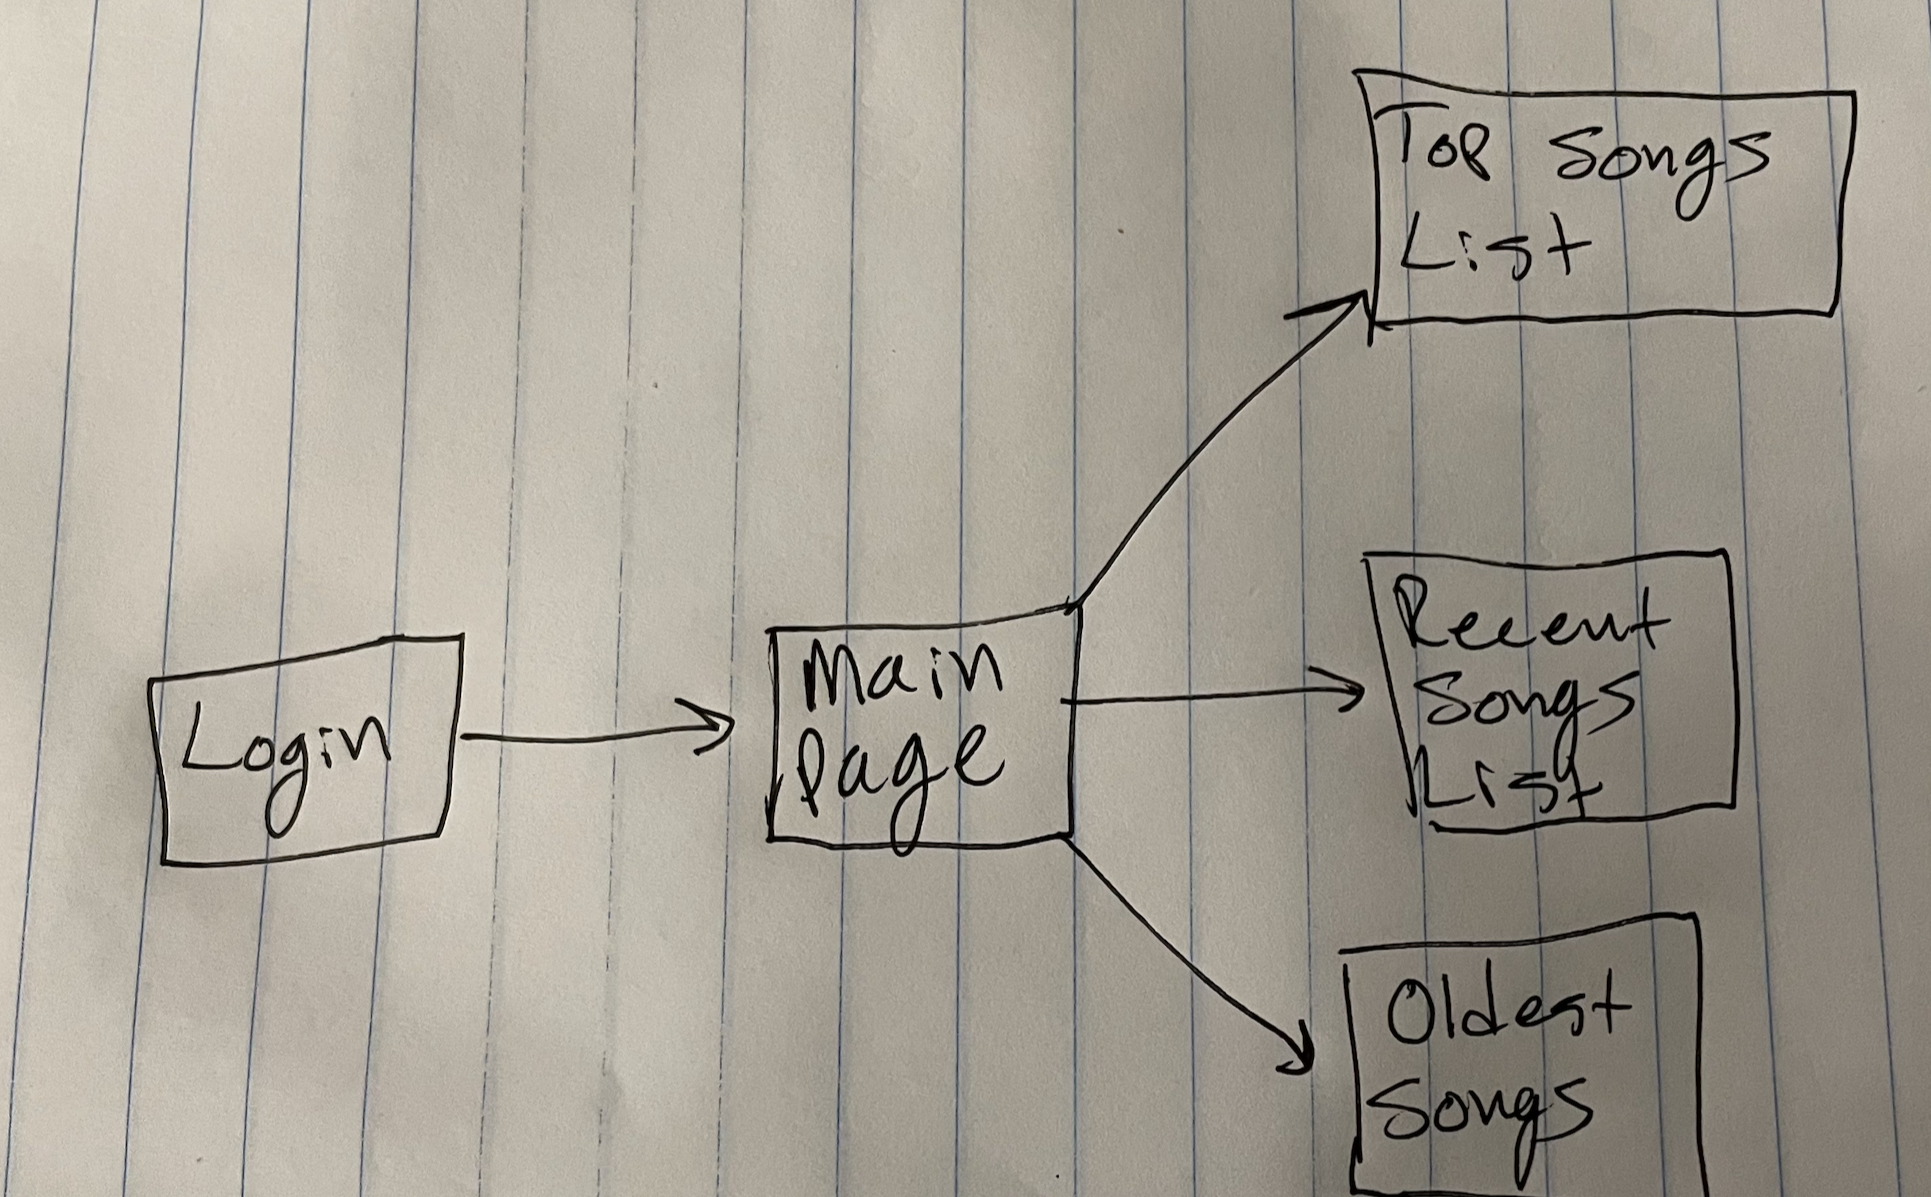 Top Songs
List
Login
Main
Page
Recent
Songs
List
Oldest
Songs